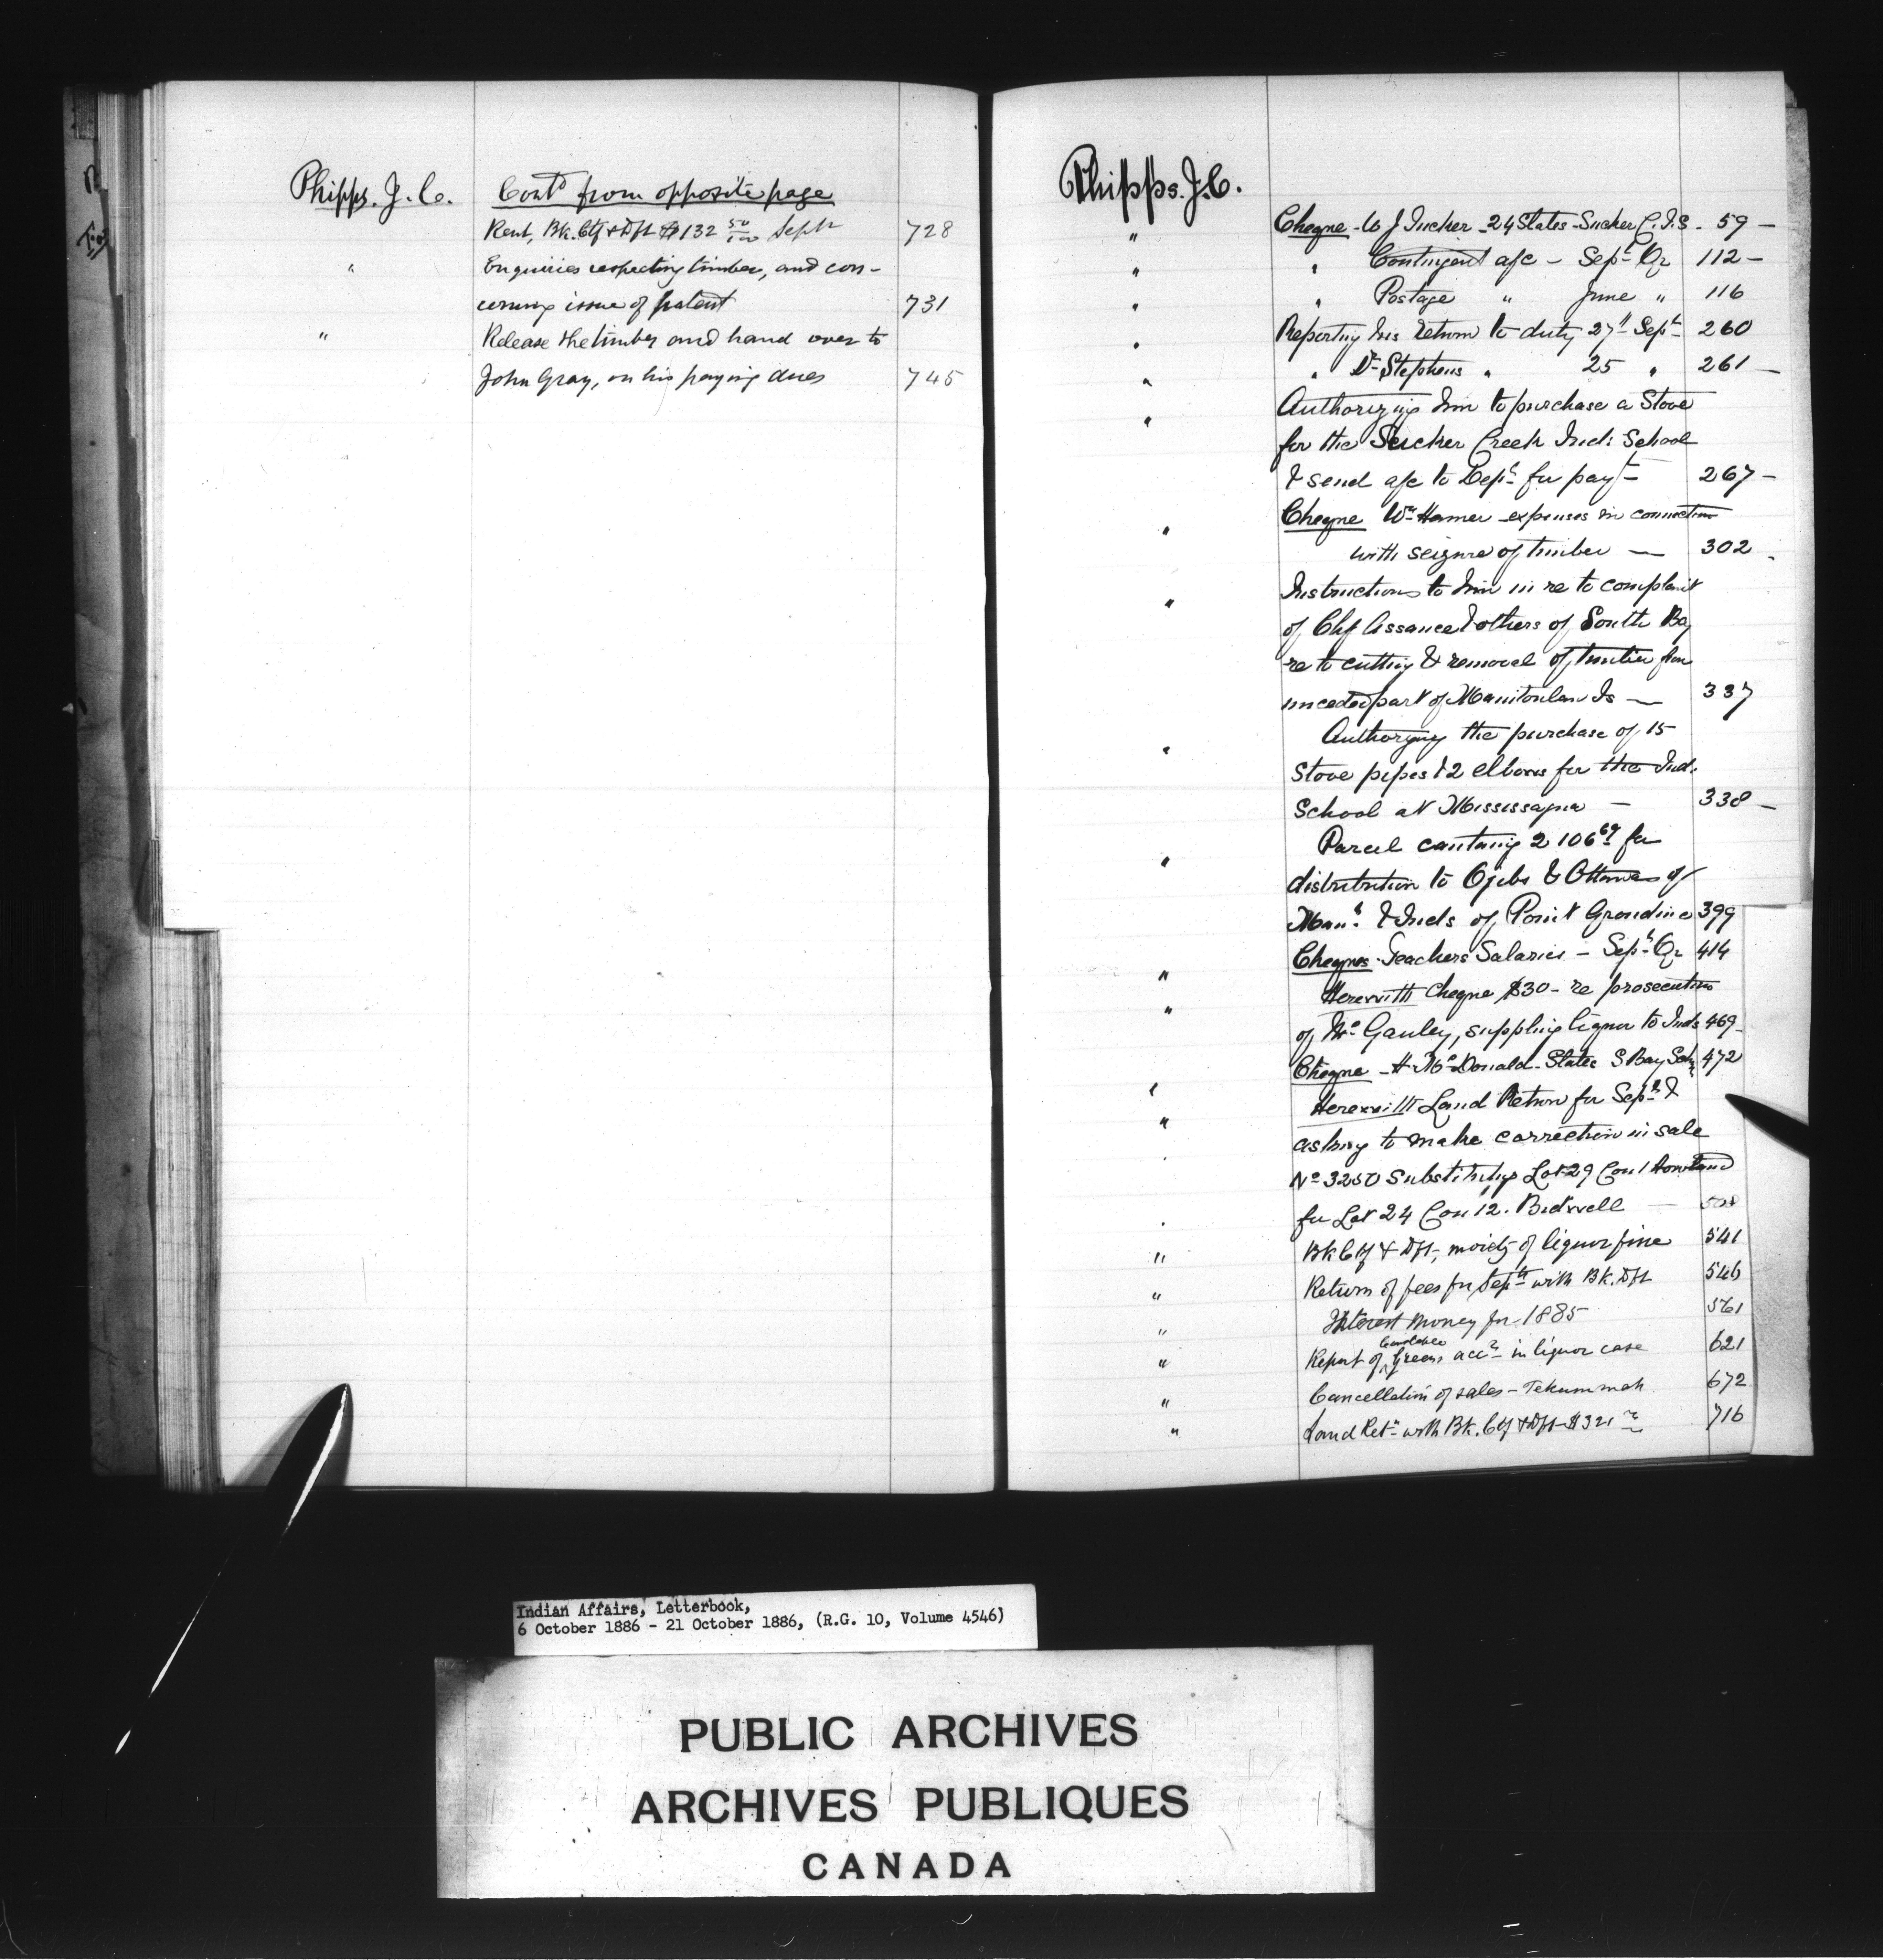 Phipps. J. C.
Contd from opposite page
Rent, Bk. Ctf & Dft $132 50/100 Septr 728
" Enquiries respecting timber, and con-
cerning issue of patent 731
" Release the timber and hand over to
John Gray, on his paying dues 745
Phipps. J. C.
" Cheque - W J Tucker - 24 States - Sucker C. I. S - 59 -
" " Contingent a/c - Sept Qr 112 -
" " Postage " June " 116
" Reporting his return to duty 27th Sept 260
" " Dr Stephens " 25 " 261 -
" Authorizing him to purchase a Stove
for the Sucker Creek Ind: School
& send a/c to Dept for payt 267 -
" Cheque Wm Hamer expenses in connection
with seizure of timber - 302 -
" Instructions to him in re to complaint
of Chf Assance & others of South Bay
re to cutting & removal of timber from
unceded part of Manitoulin Is - 337
" Authorizing the purchase of 15
Stove pipes & 2 elbows for the Ind:
School at Mississagua - 338 -
" Parcel containg 2 106 69 for
distribution to Ojibs & Ottawas of
Man. & Inds of Point Grondine 399
" Cheques - Teachers Salaries - Sept Qr 414
" Herewith Cheque $30 - re prosecution
of Mc Gauley, supplying liquor to Inds 469 -
" Cheque - H McDonald - States S Bay Sch 472
" Herewith Land Return for Sept &
asking to make correction in sale
No 3250 Substituting Lot 29 Con 1 Howland
for Lot 24 Con 12. Bidwell -
" Bk Ctf & Dft, moiety of liquor fine 541
" Return of fees for Septr with Bk. Dft 546
" Interest Money for 1885 561
" Report of Constable Greens acct in liquor case 621
" Cancellation of sales - Tekummah 672
" Land Retn with Bk. Ctf & Dft $321 716
Indian Affairs, Letterbook,
6 October 1886 - 21 October 1886, (R.G. 10, Volume 4546)
PUBLIC ARCHIVES
ARCHIVES PUBLIQUES
CANADA